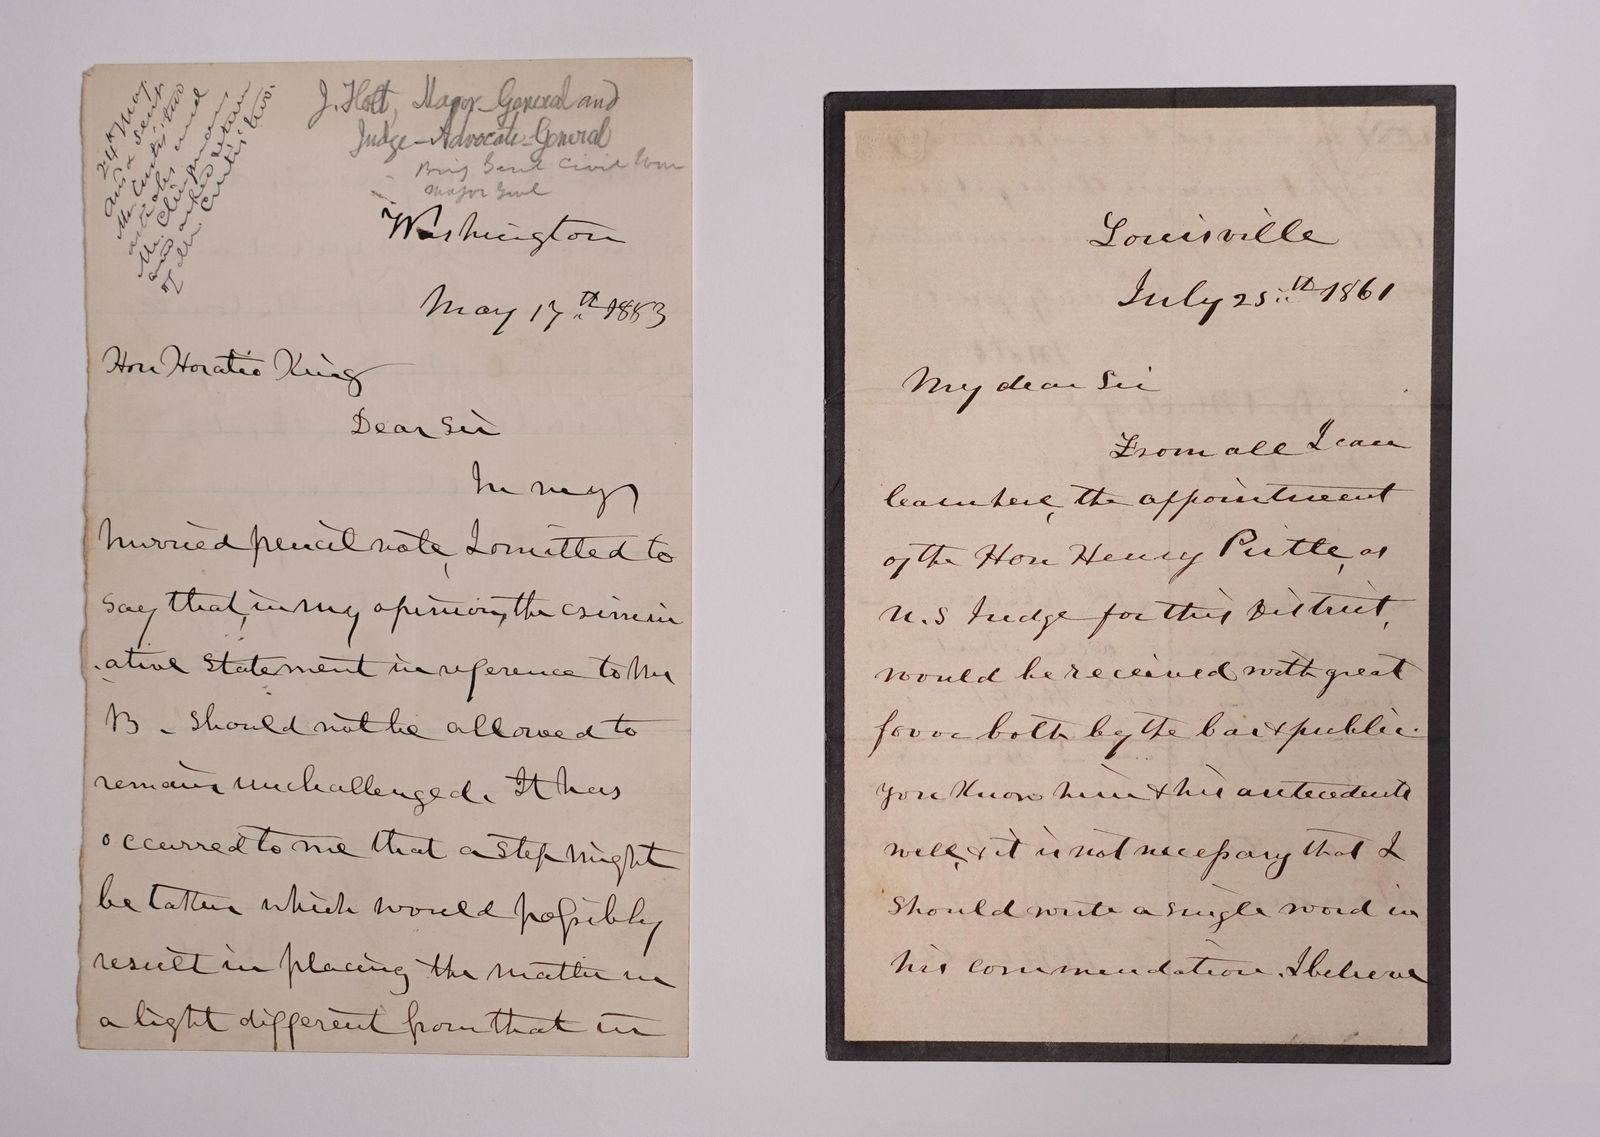 24th May.
And I sent
Mr. Curtis two
articles and
Mr. Clingman
and asked return
of Mr. Curtis' two.
J. Holt, Major-General and
Judge-Advocate-General
Brig Genl Civil War
Major Genl
Washington
May 17th 1883
Hon Horatio King
Dear Sir
In my
hurried pencil note, I omitted to
say that, in my opinion, the crimin
ative statement in reference to Mr
B - should not be allowed to
remain unchallenged. It has
occurred to me that a step might
be taken which would possibly
result in placing the matter in
a light different from that in
Louisville
July 25th 1861
My dear Sir
From all I can
learn here, the appointment
of the Hon Henry Pirtle, as
U.S Judge for this District,
would be received with great
favor both by the bar & public.
You know him & his antecedents
well, & it is not necessary that I
should write a single word in
his commendation. I believe